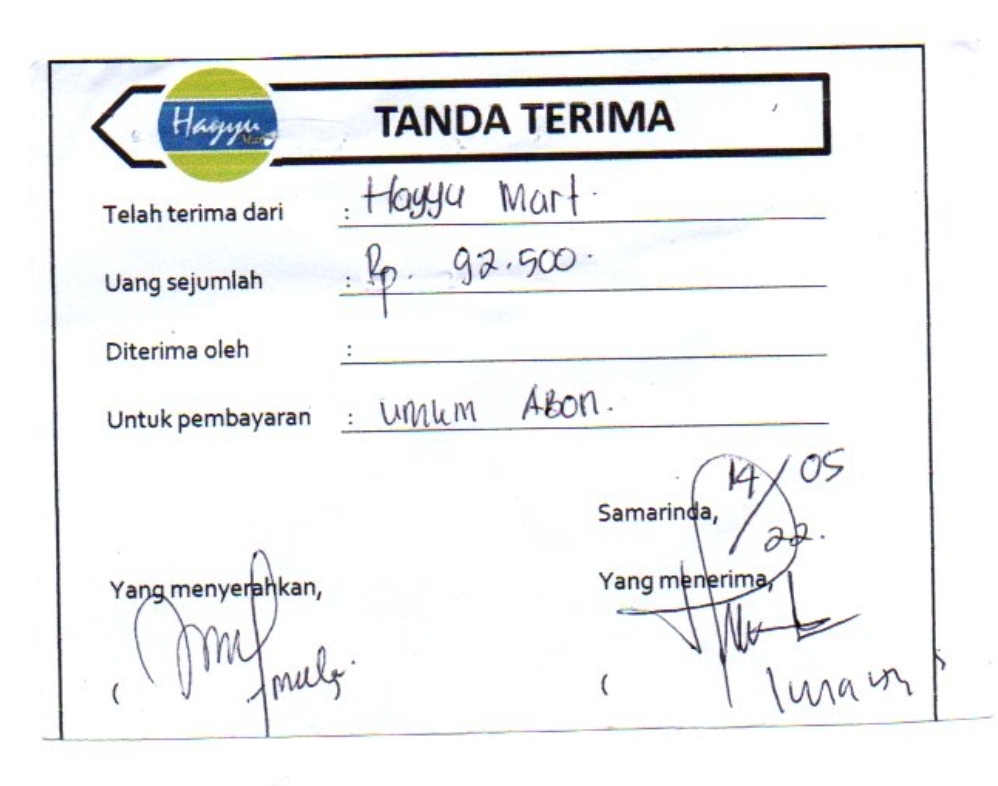 Hayyu
Mart
TANDA TERIMA
Telah terima dari : Hayyu Mart.
Uang sejumlah : Rp. 92.500.
Diterima oleh :
Untuk pembayaran : umkm ABON.
Samarinda, 14/05
22.
Yang menyerahkan, Yang menerima,